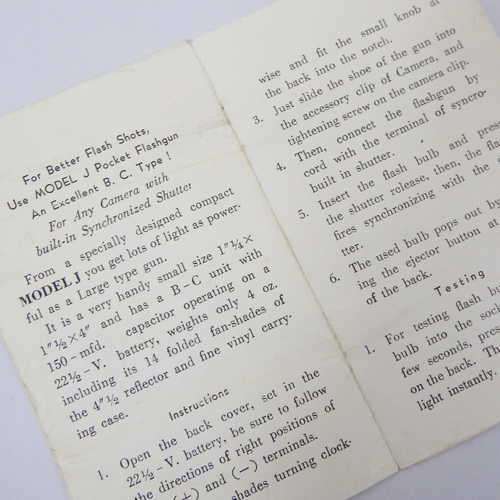 For Better Flash Shots,
Use MODEL J Pocket Flashgun
An Excellent B. C. Type !
For Any Camera with
built-in Synchronized Shutter
From a specially designed compact
MODEL J you get lots of light as power-
ful as a Large type gun.
It is a very handy small size 1"¼ ×
1"½ × 4" and has a B-C unit with
150-mfd. capacitor operating on a
22½-V. battery, weights only 4 oz.
including its 14 folded fan-shades of
the 4"½ reflector and fine vinyl carry-
ing case.
Instructions
1. Open the back cover, set in the
22½-V. battery, be sure to follow
the directions of right positions of
(+) and (-) terminals.
shades turning clock-
wise and fit the small knob at
the back into the notch.
3. Just slide the shoe of the gun into
the accessory clip of Camera, and
tightening screw on the camera clip.
4. Then, connect the flashgun by
cord with the terminal of syncro-
built in shutter.
5. Insert the flash bulb and press
the shutter release, then, the fla
fires synchronizing with the
tter.
6. The used bulb pops out by
ing the ejector button at
of the back.
Testing
1. For testing flash bu
bulb into the soc
few seconds, pre
on the back. Th
light instantly.